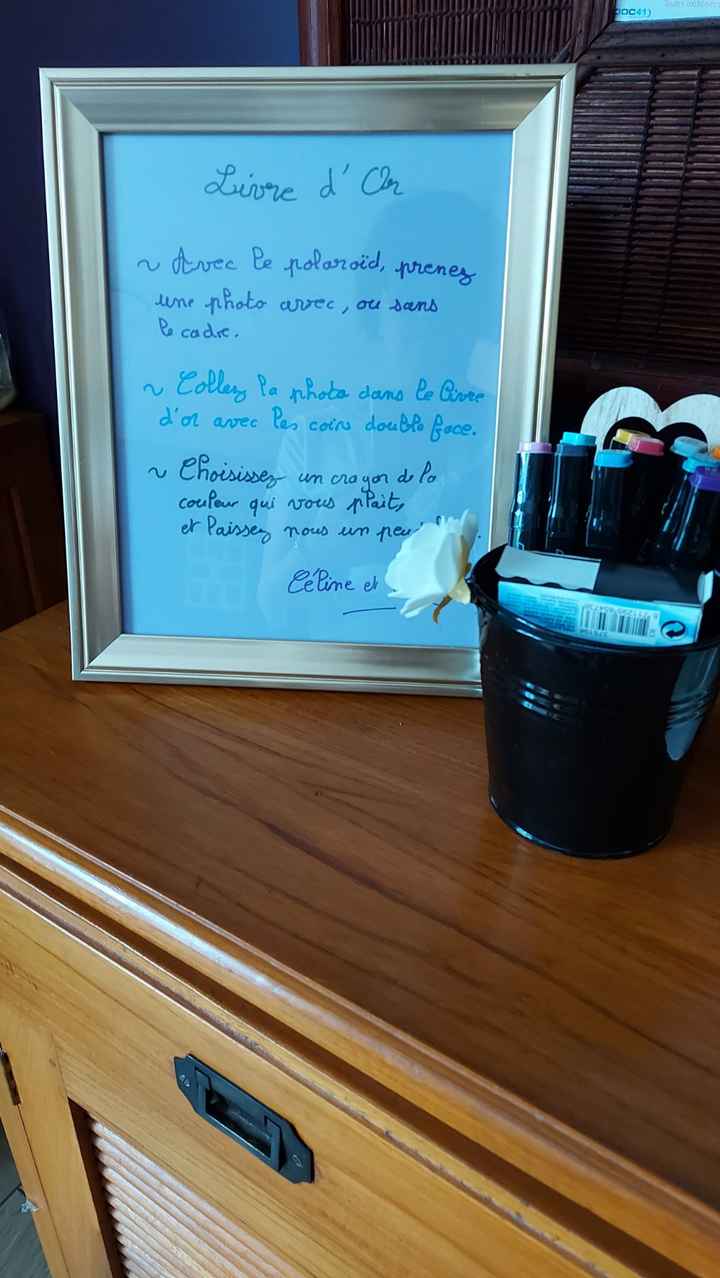 Livre d'Or
~ Avec le polaroïd, prenez
une photo avec, ou sans
le cadre.
~ Collez la photo dans le livre
d'or avec les coins double face.
~ Choisissez un crayon de la
couleur qui vous plaît,
et laissez nous un peu
Céline et